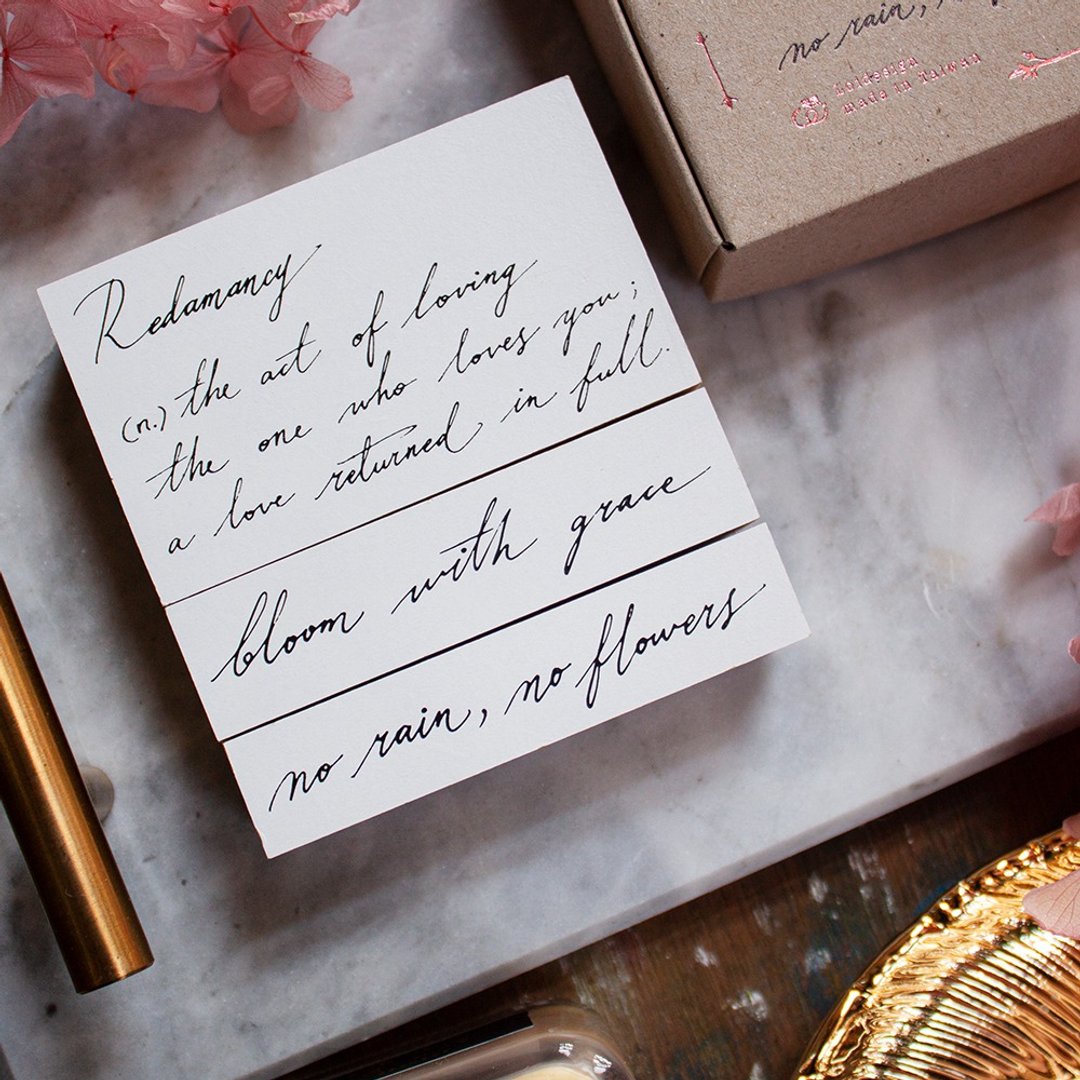 Redamancy
(n.) the act of loving
the one who loves you;
a love returned in full.
bloom with grace
no rain, no flowers
no rain,
Loidesign
made in Taiwan